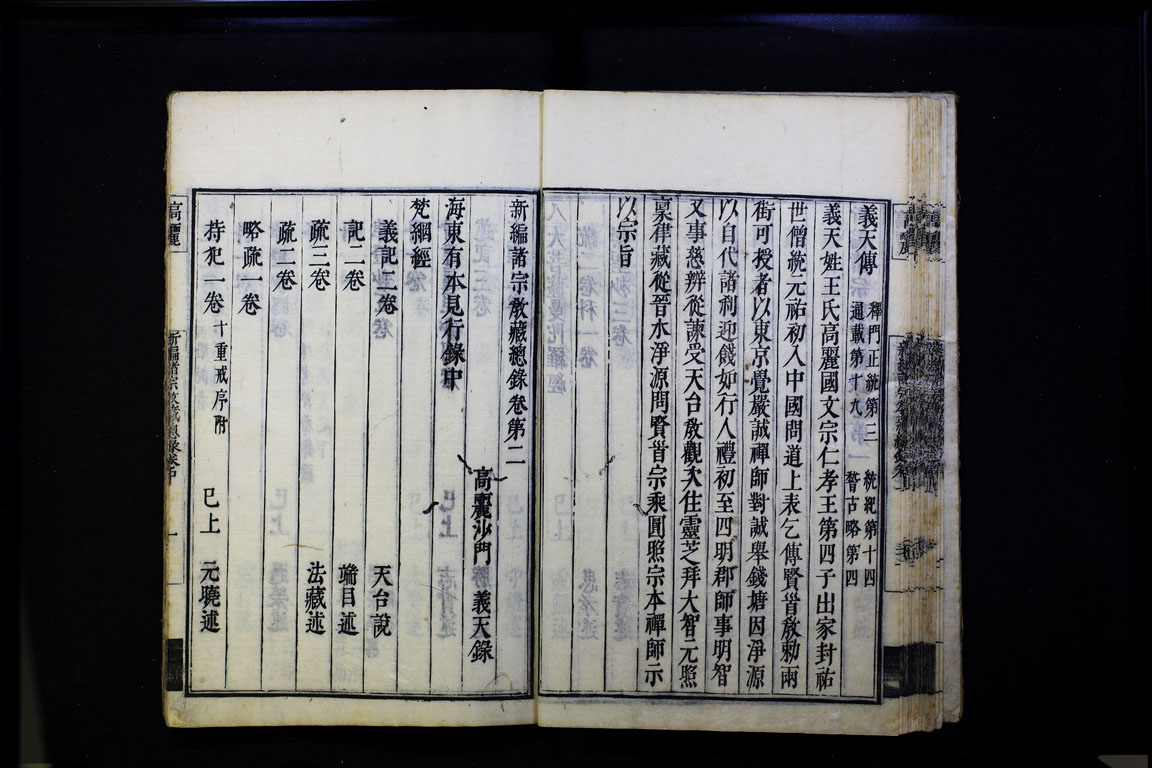 義天傳
釋門正統第三 統紀第十四
通載第十九 稽古略第四
義天姓王氏高麗國文宗仁孝王第四子出家封祐
世僧統元祐初入中國問道上表乞傳賢首教勅兩
街可授者以東京覺嚴誠禪師對誠舉錢塘因淨源
以自代諸刹迎餞如行人禮初至四明郡師事明智
又事慈辯從諫受天台教觀大住靈芝拜大智元照
稟律藏從晉水淨源問賢首宗乘圓照宗本禪師示
以宗旨
新編諸宗教藏總錄卷第二
高麗沙門 義天錄
海東有本見行錄中
梵網經
義記二卷 天台說
記二卷 端目述
疏三卷 法藏述
疏二卷
略疏一卷
持犯一卷 十重戒序附 已上 元曉述
高麗
新編諸宗教藏總錄卷中
一